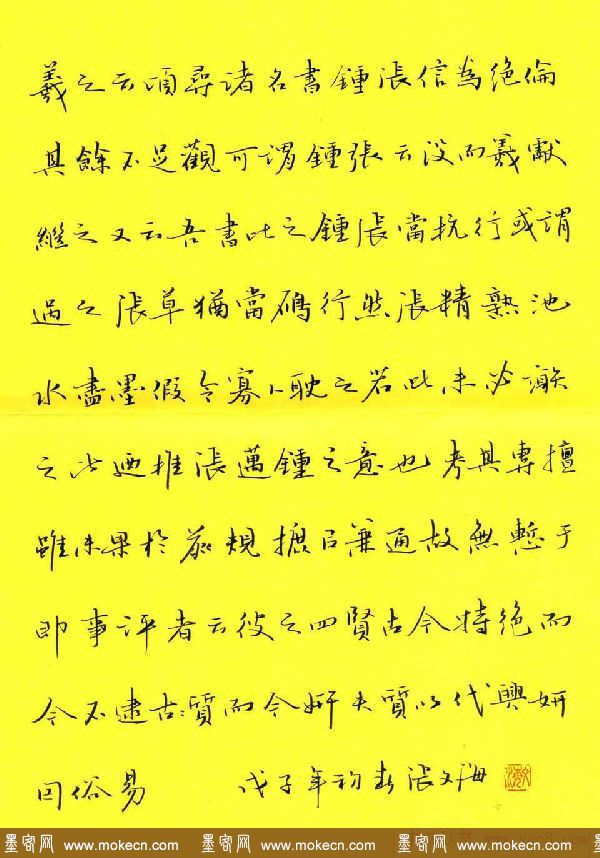 羲之云頃尋諸名書鍾張信為絕倫
其餘不足觀可謂鍾張云沒而羲獻
繼之又云吾書比之鍾張當抗行或謂
過之張草猶當鴈行然張精熟池
水盡墨假令寡人耽之若此未必謝
之此乃推張邁鍾之意也考其專擅
雖未果於前規摭以兼通故無慙于
即事評者云彼之四賢古今特絕而
今不逮古古質而今妍夫質以代興妍
因俗易 戊子年初春張文海
墨客网 www.mokecn.com 墨客网 www.mokecn.com 墨客网 www.mokecn.com